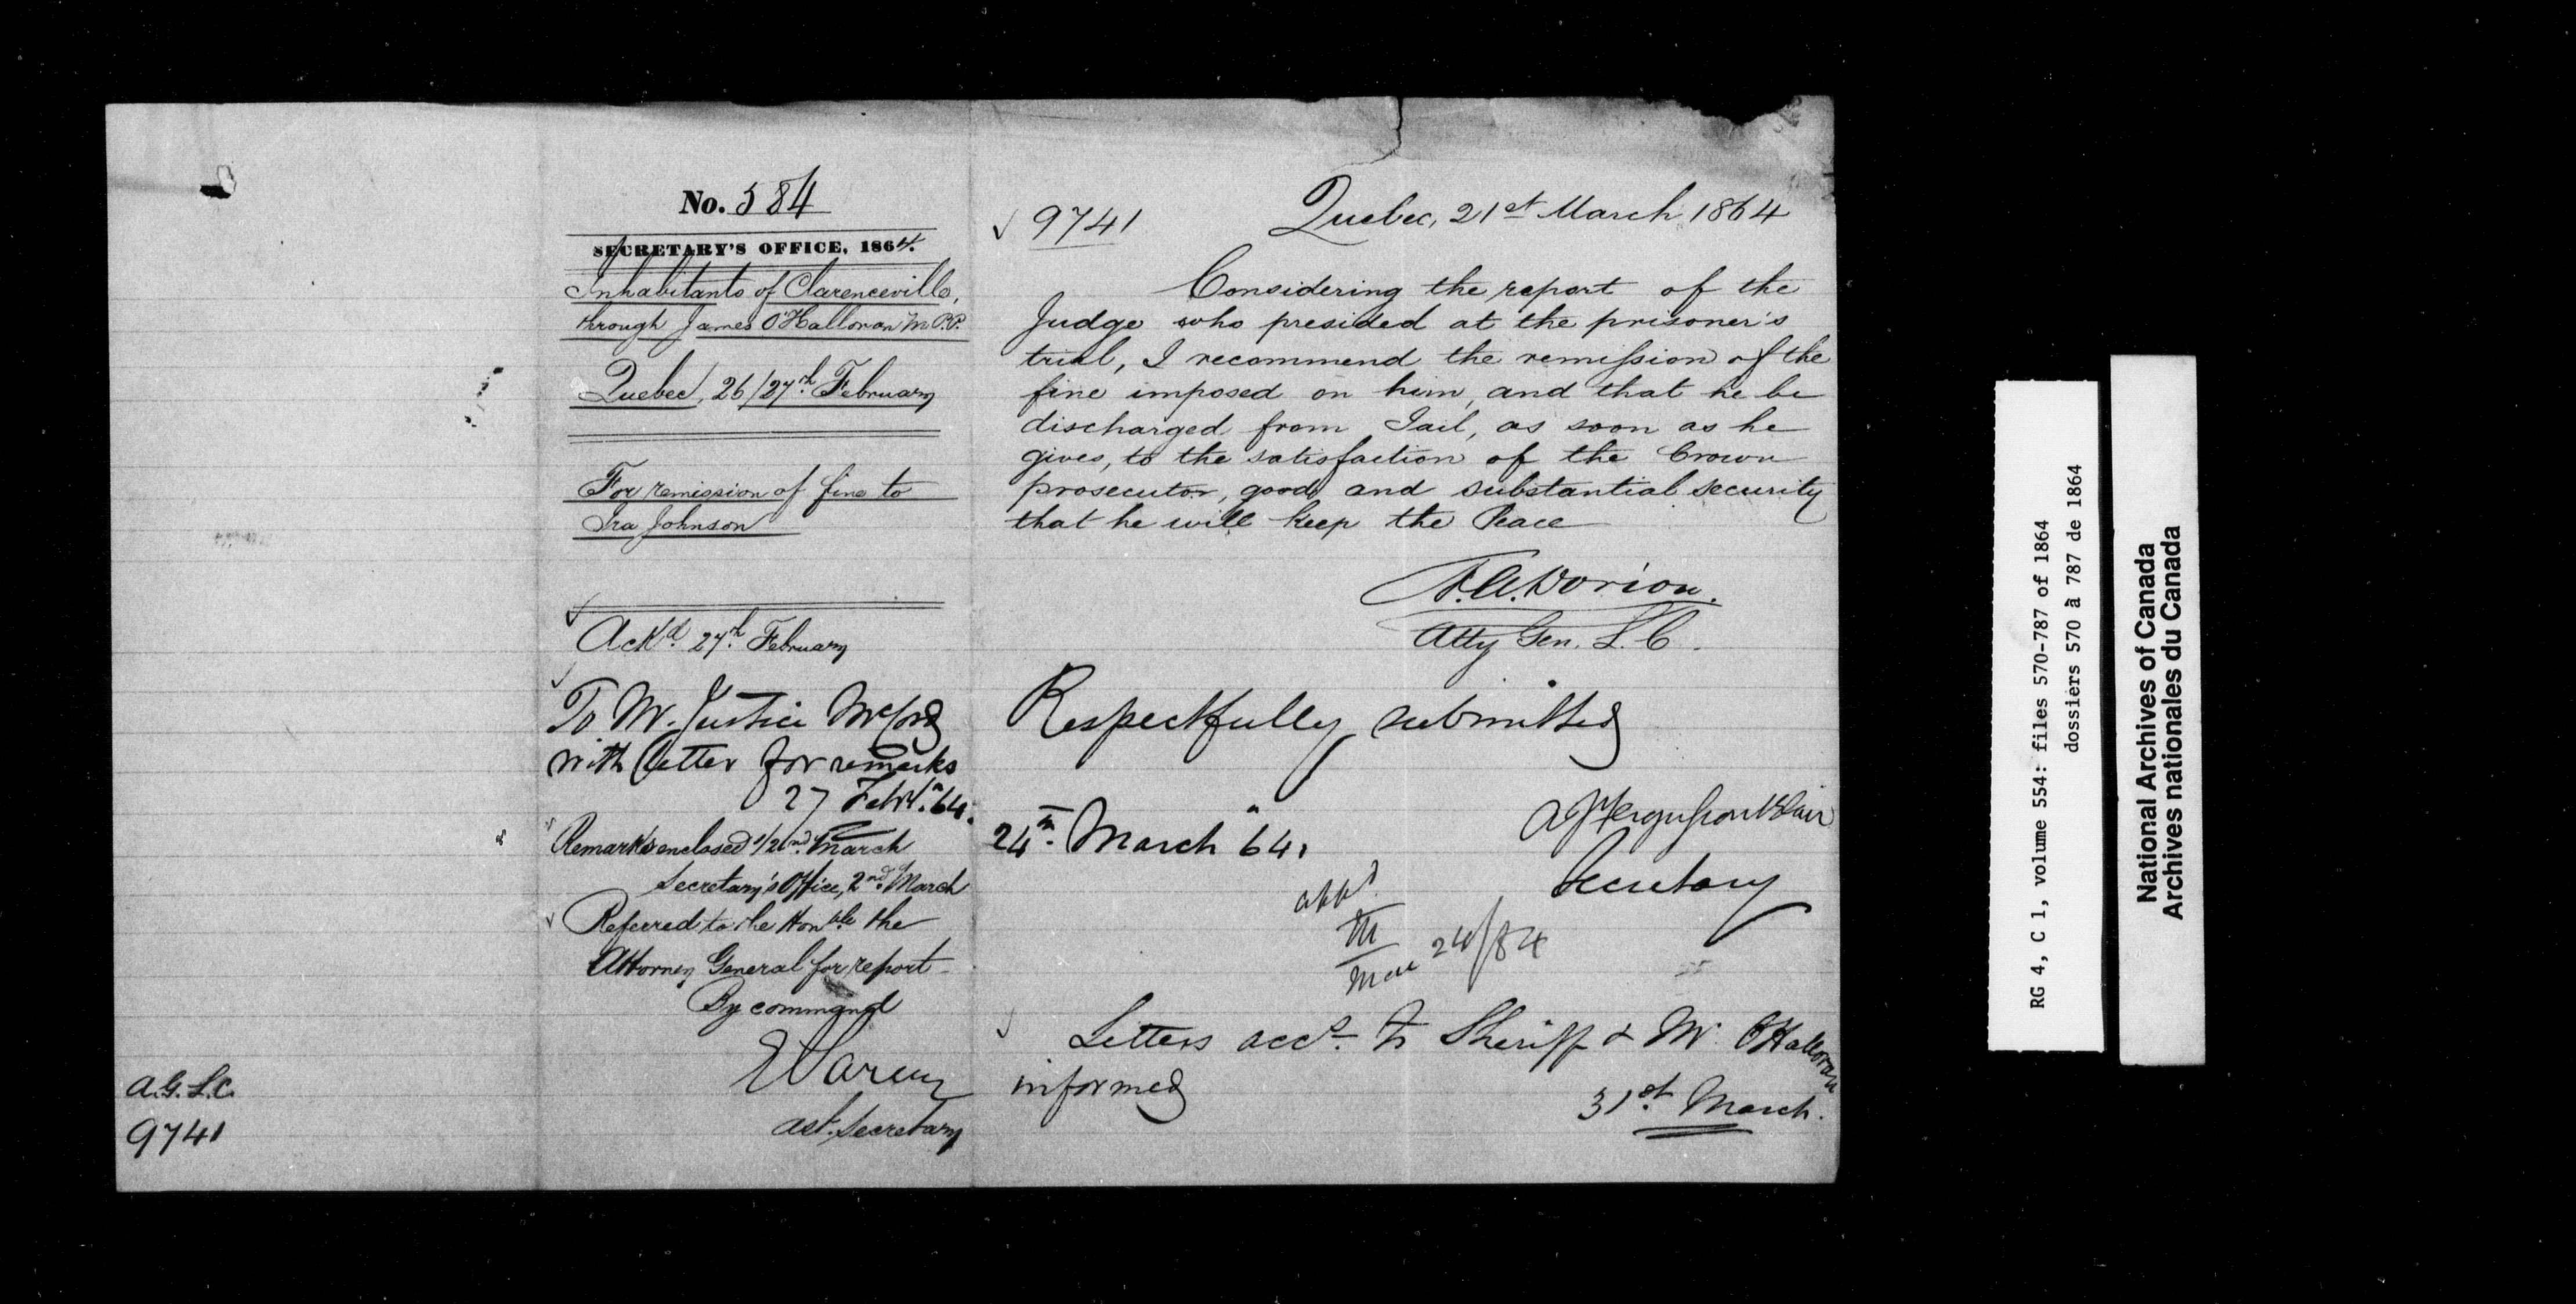 No. 584
SECRETARY'S OFFICE, 1864.
Inhabitants of Clarenceville,
through James O'Halloran M.P.P.
Quebec, 26/27th February
For remission of fine to
Ira Johnson
Ackd. 27th February
To Mr. Justice McCord
with letter for remarks
27 Feby. 64.
Remarks enclosed 1/2nd March
Secretary's Office, 2nd March
Referred to the Honble the
Attorney General for report
By command
Asst. Secretary
A.G.L.C.
9741
9741
Quebec, 21st March 1864
Considering the report of the
Judge who presided at the prisoner's
trial, I recommend the remission of the
fine imposed on him, and that he be
discharged from Jail, as soon as he
gives, to the satisfaction of the Crown
prosecutor, good and substantial security
that he will keep the Peace
A.A. Dorion.
Atty Gen. L.C.
Respectfully submitted
A J Fergusson Blair
24th March 64.
Secretary
appd
M
Mar 24/64
Letters accy. to Sheriff & Mr. O'Halloran
informed
31st March.
RG 4, C 1, volume 554: files 570-787 of 1864
dossiers 570 à 787 de 1864
National Archives of Canada
Archives nationales du Canada